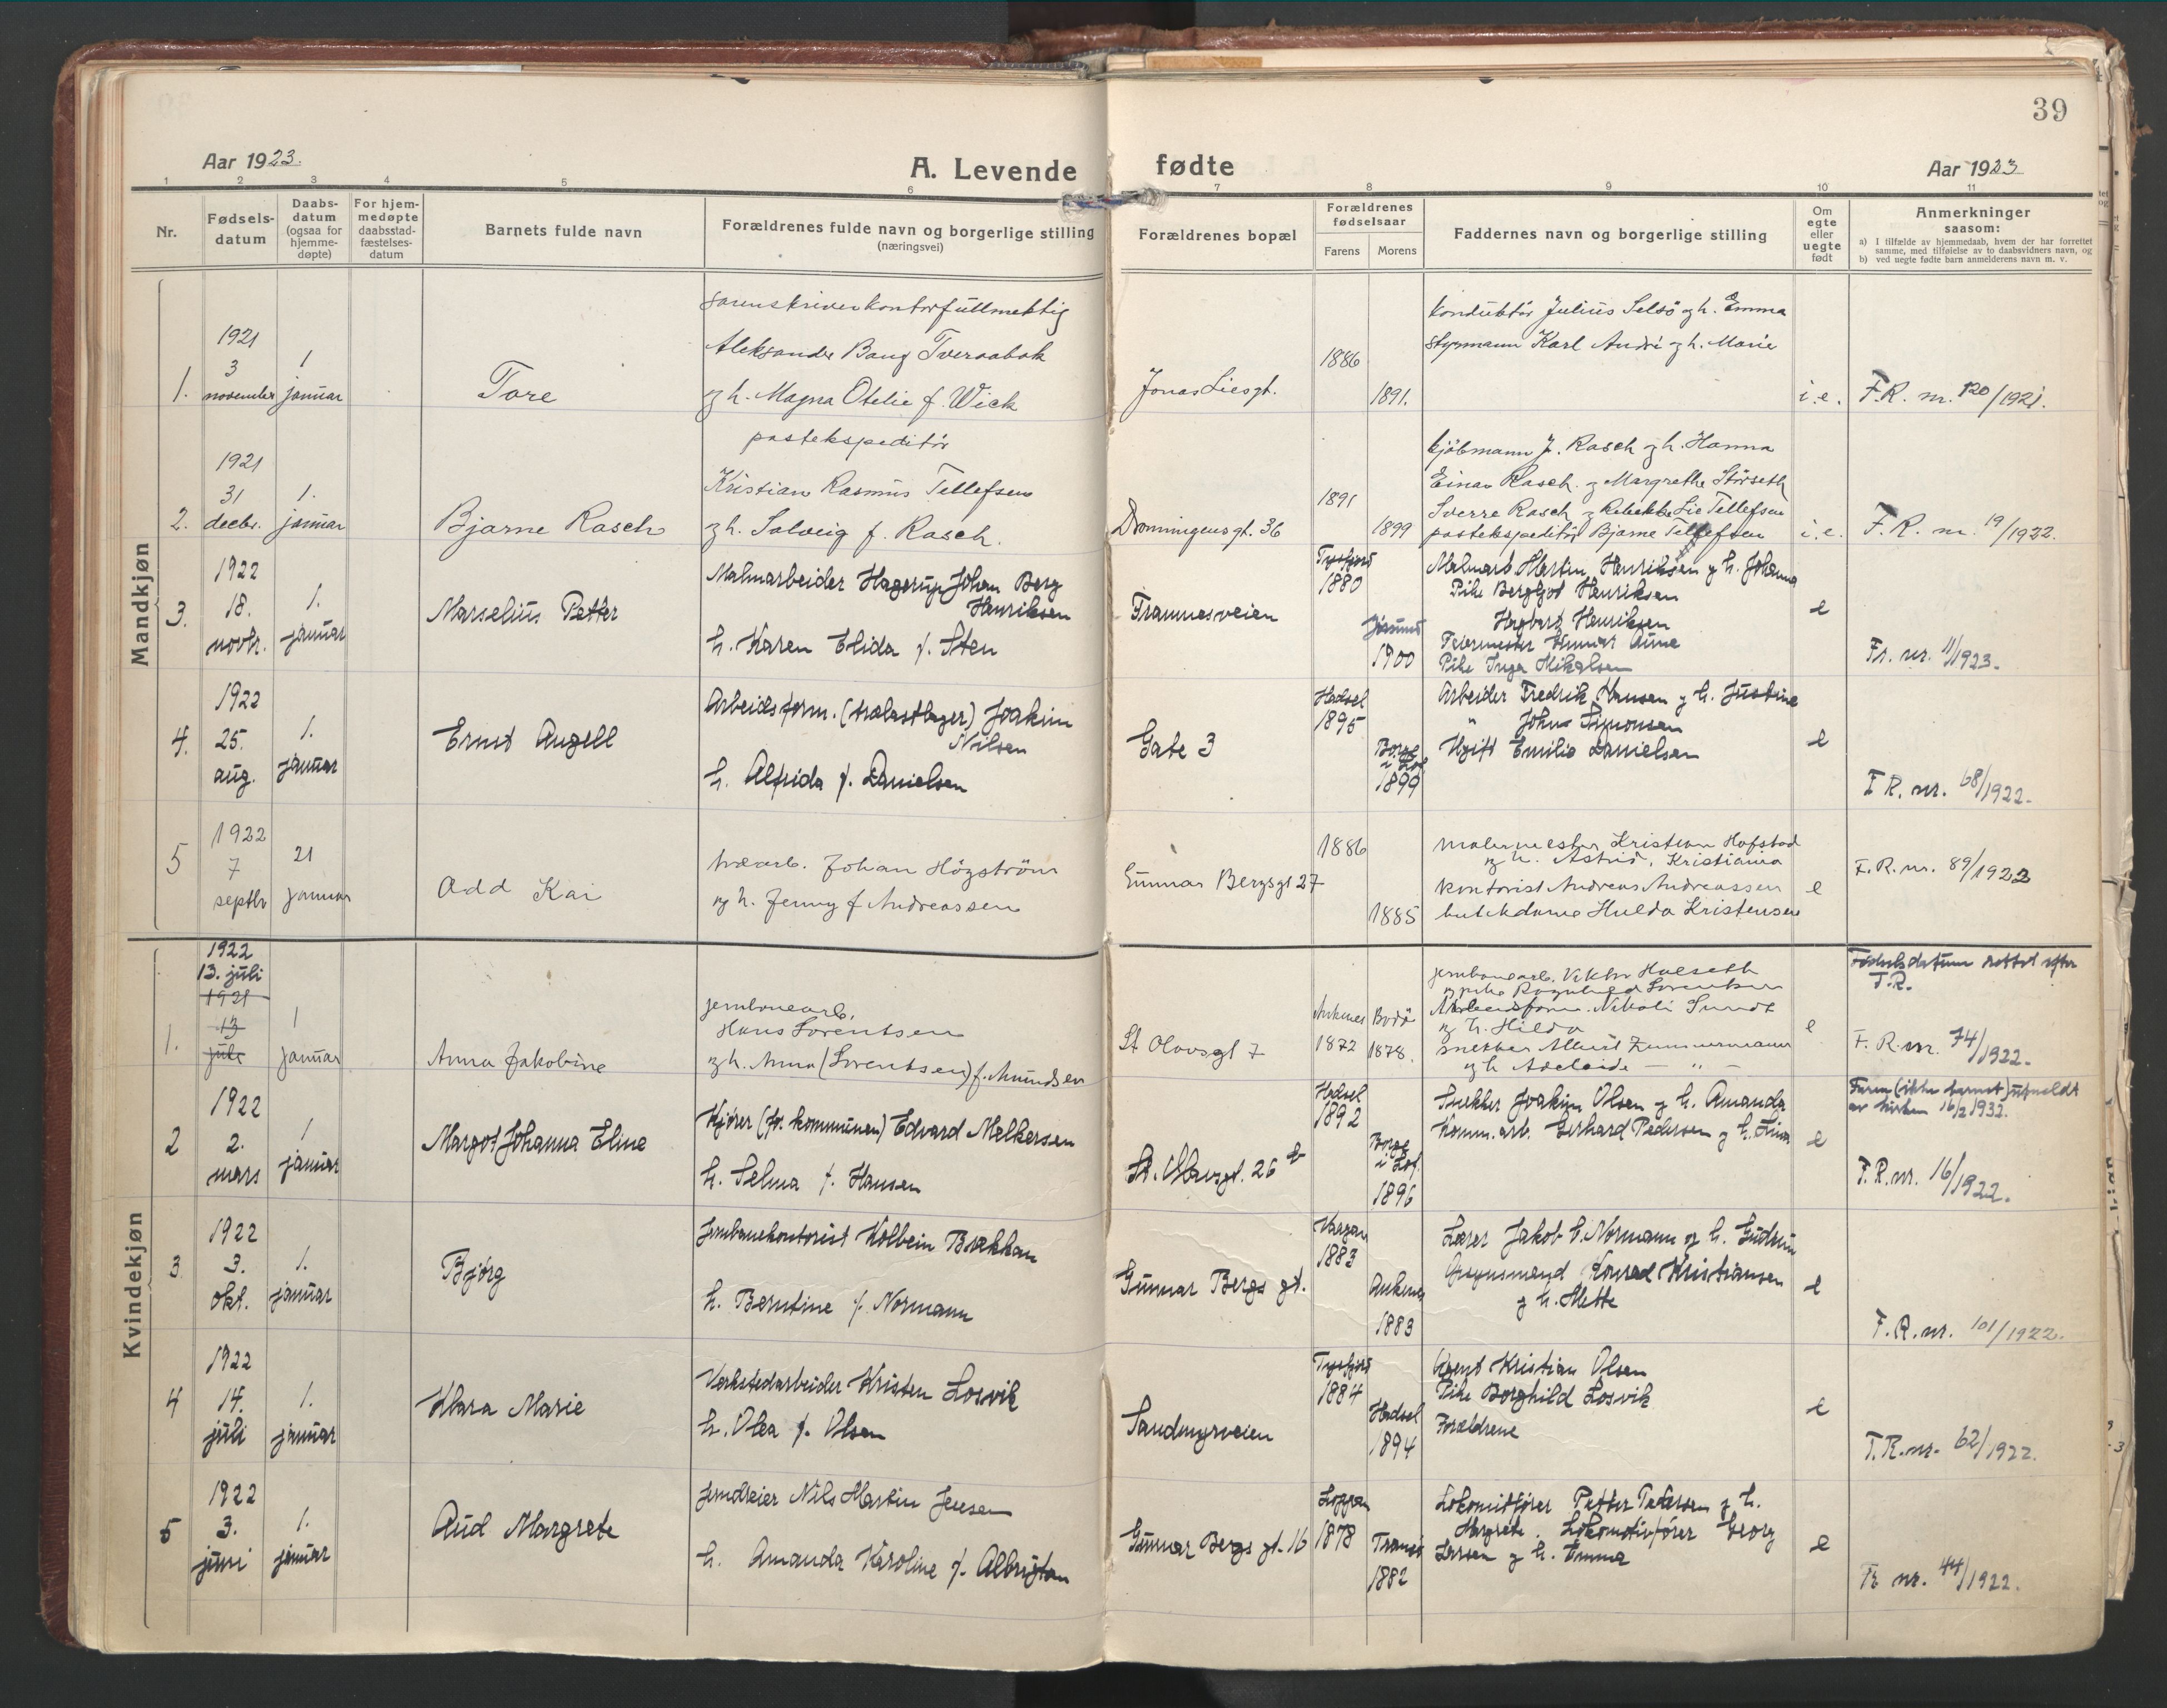 39
Aar 1923.
A. Levende fødte
Aar 1923
1 2 3 4 5 6 7 8 9 10 11
Nr.
Fødsels-
datum
Daabs-
datum
(ogsaa for
hjemme-
døpte)
For hjem-
medøpte
daabsstad-
fæstelses-
datum
Barnets fulde navn
Forældrenes fulde navn og borgerlige stilling
(næringsvei)
Forældrenes bopæl
Forældrenes
fødselsaar
Farens
Morens
Faddernes navn og borgerlige stilling
Om
egte
eller
uegte
født
Anmerkninger
saasom:
a) I tilfælde av hjemmedaab, hvem der har forrettet
samme, med tilføielse av to daabsvidners navn, og
b) ved uegte fødte barn anmelderens navn m. v.
Mandkjøn
1.
1921
3
november
1
januar
Tore
sorenskriverkontorfullmektig
Aleksander Bang Tveraabak
og h. Magna Otelie f. Wick
Jonas Liesgt.
1886
1891.
Konduktør Julius Selsö og h. Emma
Styrmann Karl André og h. Marie
i.e.
F.R. nr. 120/1921.
2.
1921
31
decbr.
1.
januar
Bjarne Rasch
postekspeditör
Kristian Rasmus Tellefsen
og h. Solveig f. Rasch.
Dronningensgt. 36
1891
1899
kjöbmann J. Rasch og h. Hanna
Einar Rasch og Margrethe Störseth
Sverre Rasch og Rebekka Lie Tellefsen
postekspeditör Bjarne Tellefsen
i.e.
F.R. nr. 19/1922.
3.
1922
18.
novbr.
1.
januar
Marselius Petter
Malmarbeider Hagerup Johan Berg
Henriksen
h. Karen Elida f. Sten
Framnesveien
Tysfjord
1880
1900
Malmarb Martin Henriksen og h. Johanna
Pike Bergljot Henriksen
Hagbart Henriksen
Feiermester Gunnar Aune
Pike Inga Mikalsen
e
Fr. nr. 11/1923.
4.
1922
25.
aug.
1.
januar
Ernst Angell
Arbeidsform. (trælastlager) Joakim
Nilsen
h. Alfrida f. Danielsen
Gate 3
Hadsel
1895
Borge
i Lof
1899
Arbeider Fredrik Hansen og h. Justine
" Johns Simonsen
Ugift Emilie Danielsen
e
F R. nr. 68/1922.
5
1922
7
septbr
21
januar
Odd Kai
Johan Högström
og h. Jenny f Andreassen
Gunnar Bergsgt 27
1886
1885
malermester Kristian Hofstad
og h. Astrid, Kristiania
kontorist Andreas Andreassen
butikdame Hulda Kristensen
e
F.R. nr. 89/1922
Kvindekjøn
1.
1922
13. juli
1921
13
juli
1
januar
Anna Jakobine
jernbanearb.
Hans Lorentsen
og h. Anna (Lorentsen) f. Amundsen
St Olavsgt 7
Ankenes
1872
Bodö
1878.
jernbanearb. Viktor Holseth
og pike Ragnhild Lorentsen
Arbeidsform. Nikolai Sundt
og h. Hilda
snekker Albert Zimmermann
og h Adelaide – " –
e
Fødselsdatum rettet efter
F.R.
F.R. nr. 74/1922.
2
1922
2.
mars
1
januar
Margot Johanna Eline
Kjører (for kommunen) Edvard Melkersen
h. Selma f. Hansen
St. Olavsgt. 26 b
Hadsel
1892
Borge
i Lof.
1896
Snekker Joakim Olsen og h. Amanda
Komm. arb. Gerhard Pedersen og h. Lina
e
Faren (ikke barnet) utmeldt
av kirken 16/2 1932.
F.R. nr. 16/1922.
3
1922
3.
okt.
1.
januar
Bjørg
Jernbanekontorist Kolbein Brækkan
h. Berntine f. Normann
Gunnar Bergs gt.
Vaagan
1883
Ankenes
1883
Lærer Jakob C. Normann og h. Gudrun
Opsynsmand Konrad Kristiansen
og h. Mette
e
F.R. nr. 101/1922.
4
1922
14.
juli
1.
januar
Klara Marie
Verkstedarbeider Kristen Losvik
h. Olea f. Olsen
Sandmyrveien
Tysfjord
1884
Hadsel
1894
Agent Kristian Olsen
Pike Borghild Losvik
Forældrene
e
F.R. nr. 62/1922.
5
1922
3.
juni
1.
januar
Aud Margrete
Jerndreier Nils Martin Jensen
h. Amanda Karoline f. Albrigtsen
Gunnar Bergs gt. 16
Loppen
1878
Tromsø
1882
Lokomotfører Petter Pedersen og h.
Margrete. Lokomotivfører Georg
Larsen og h. Emma
e
Fr nr. 44/1922.